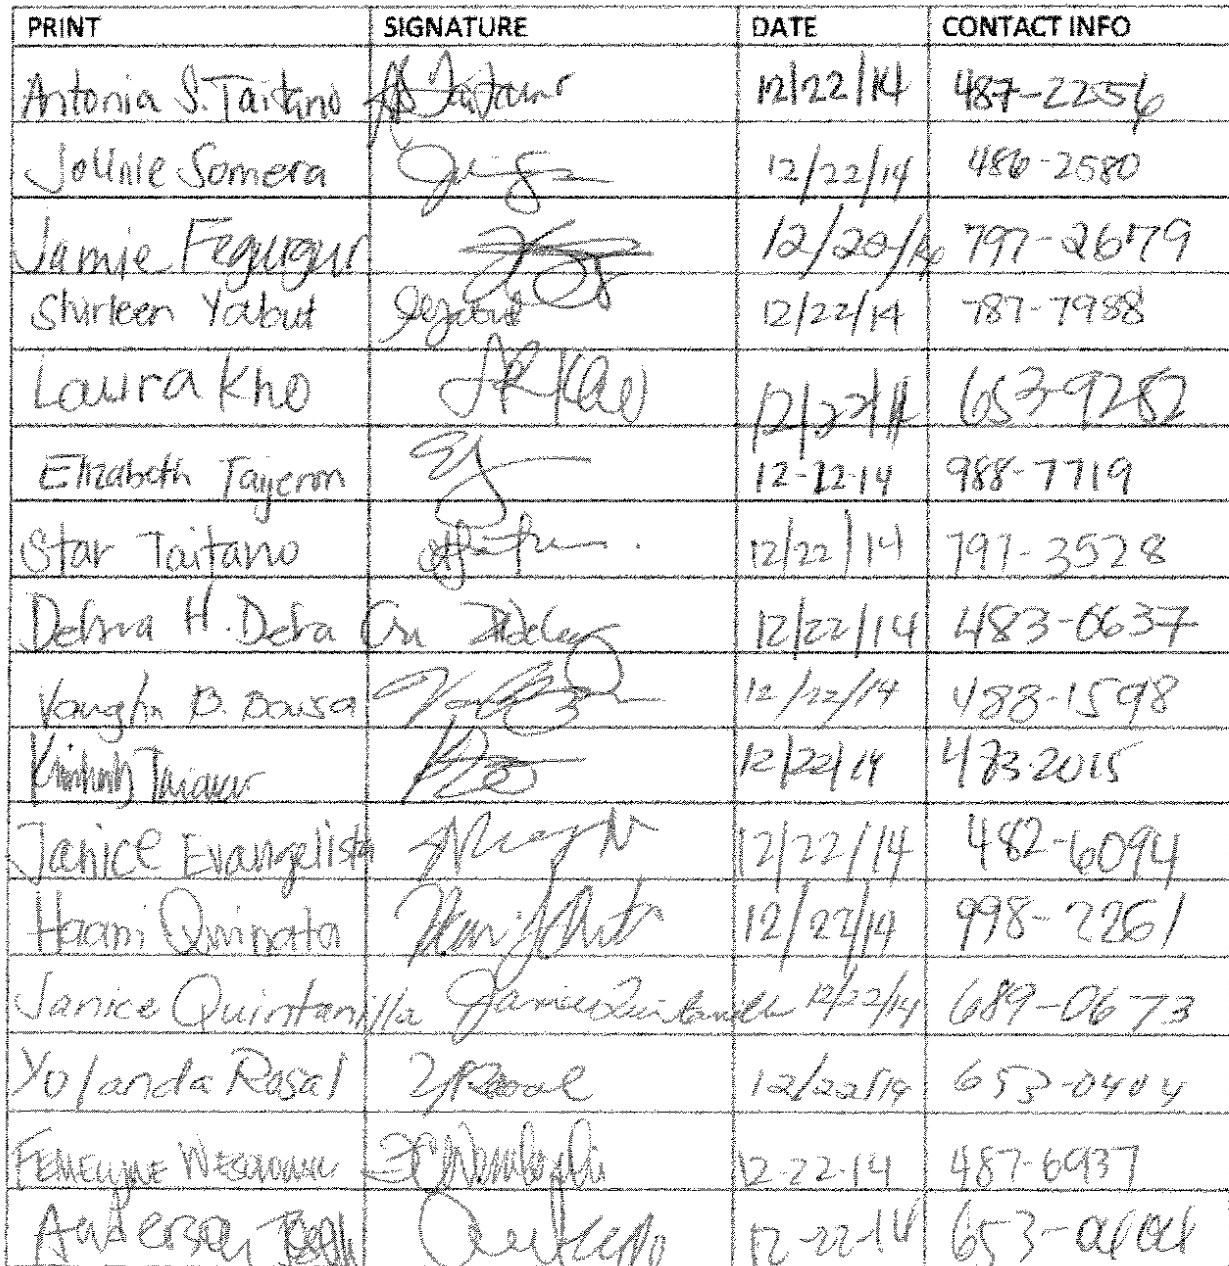 PRINT SIGNATURE DATE CONTACT INFO
Antonia S. Taitano 12/22/14 487-2256
Jollnie Somera 12/22/14 486-2580
Jamie Fegurgur 12/22/14 797-2679
Shirleen Yabut 12/22/14 787-7988
Laura Kho LR Kho 12/22/14 653-9282
Elizabeth Taijeron 12-22-14 988-7719
Star Taitano 12/22/14 797-3528
Debra H. Dela Cru 12/22/14 483-0637
Vaughn B. Borsa 12/22/14 488-1598
12/22/14 473-2015
Janice Evangelista 12/22/14 482-6094
Haani Quinata 12/22/14 998-2261
Janice Quintanilla Janice Quintanilla 12/22/14 689-0673
Yolanda Rosal YRosal 12/22/14 653-0404
12-22-14 487-6937
Anderson 12-22-14 653-